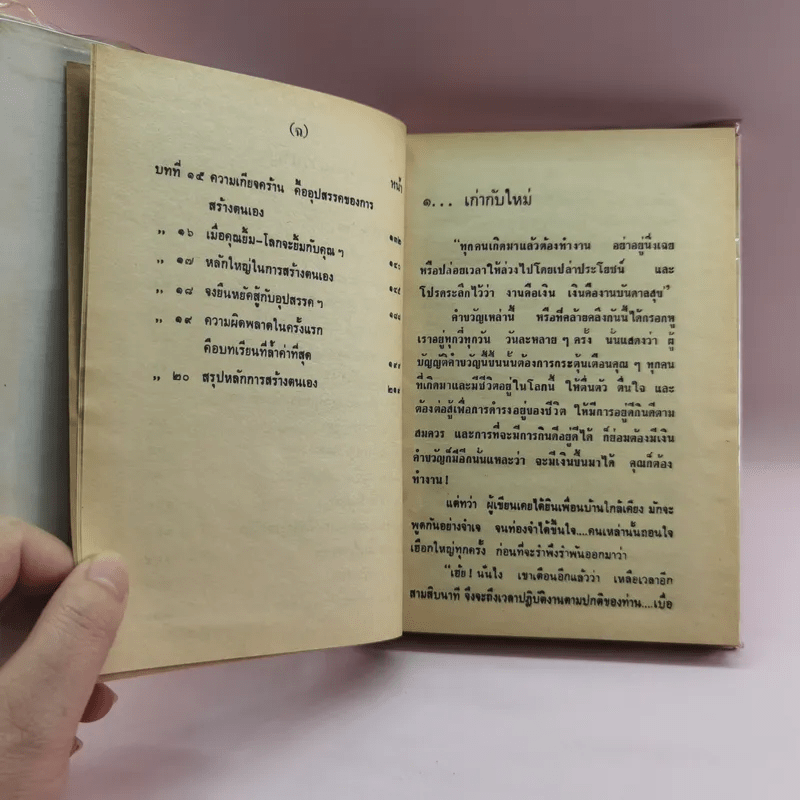 (ฉ)
หน้า
บทที่ ๑๕ ความเกียจคร้าน คืออุปสรรคของการ
สร้างตนเอง
" ๑๖ เมื่อคุณยิ้ม-โลกจะยิ้มกับคุณ ๆ
" ๑๗ หลักใหญ่ในการสร้างตนเอง
" ๑๘ จงยืนหยัดสู้กับอุปสรรค ๆ
" ๑๙ ความผิดพลาดในครั้งแรก
คือบทเรียนที่ล้ำค่าที่สุด
" ๒๐ สรุปหลักการสร้างตนเอง
๑... เก่ากับใหม่
"ทุกคนเกิดมาแล้วต้องทำงาน อย่าอยู่นิ่งเฉย
หรือปล่อยเวลาให้ล่วงไปโดยเปล่าประโยชน์ และ
โปรดระลึกไว้ว่า งานคือเงิน เงินคืองานบันดาลสุข"
คำขวัญเหล่านี้ หรือที่คล้ายคลึงกันนี้ได้กรอกหู
เราอยู่ทุกวี่ทุกวัน วันละหลาย ๆ ครั้ง นั่นแสดงว่า ผู้
บัญญัติคำขวัญนี้ขึ้นนั้นต้องการกระตุ้นเตือนคุณ ๆ ทุกคน
ที่เกิดมาและมีชีวิตอยู่ในโลกนี้ ให้ตื่นตัว ตื่นใจ และ
ต้องต่อสู้เพื่อการดำรงอยู่ของชีวิต ให้มีการอยู่ดีกินดีตาม
สมควร และการที่จะมีการกินดีอยู่ดีได้ ก็ย่อมต้องมีเงิน
คำขวัญก็มีอีกนั่นแหละว่า จะมีเงินขึ้นมาได้ คุณก็ต้อง
ทำงาน!
แต่ทว่า ผู้เขียนเคยได้ยินเพื่อนบ้านใกล้เคียง มักจะ
พูดกันอย่างจำเจ จนท่องจำได้ขึ้นใจ....คนเหล่านั้นถอนใจ
เฮือกใหญ่ทุกครั้ง ก่อนที่จะรำพึงรำพันออกมาว่า
"เฮ้ย! นั่นไง เขาเตือนอีกแล้วว่า เหลือเวลาอีก
สามสิบนาที จึงจะถึงเวลาปฏิบัติงานตามปกติของท่าน....เบื่อ